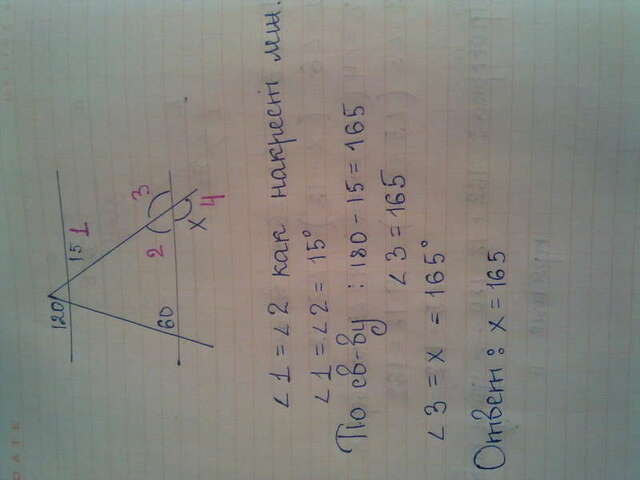 120
15 1
2
3
60
x
4
∠1 = ∠2 как накрест леж.
∠1 = ∠2 = 15°
По св-ву : 180 - 15 = 165
∠3 = 165
∠3 = x = 165°
Ответ : x = 165